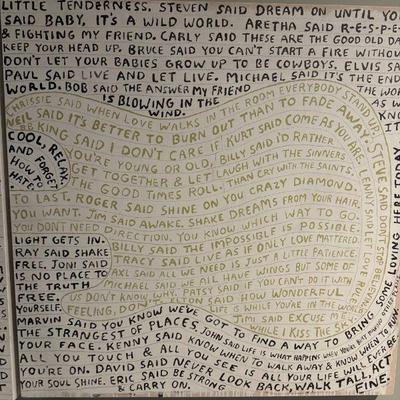 LITTLE TENDERNESS. STEVEN SAID DREAM ON UNTIL YO
SAID BABY, IT'S A WILD WORLD. ARETHA SAID R-E-S-P-E-
& FIGHTING MY FRIEND. CARLY SAID THESE ARE THE GOOD OLD DA
KEEP YOUR HEAD UP. BRUCE SAID YOU CAN'T START A FIRE WITHOU
DON'T LET YOUR BABIES GROW UP TO BE COWBOYS. ELVIS SA
PAUL SAID LIVE AND LET LIVE. MICHAEL SAID IT'S THE END
WORLD. BOB SAID THE ANSWER MY FRIEND
IS BLOWING IN THE
WIND.
CHRISSIE SAID WHEN LOVE WALKS IN THE ROOM EVERYBODY STAND UP.
NEIL SAID IT'S BETTER TO BURN OUT THAN TO FADE AWAY.
BB KING SAID I DON'T CARE IF KURT SAID COME AS YOU ARE.
COOL, RELAX,
YOU'RE YOUNG OR OLD, BILLY SAID I'D RATHER
AND FORGET
GET TOGETHER & LET LAUGH WITH THE SINNERS
HOW TO
THE GOOD TIMES ROLL. THAN CRY WITH THE SAINTS.
HATE
TO LAST. ROGER SAID SHINE ON YOU CRAZY DIAMOND.
YOU WANT. JIM SAID AWAKE. SHAKE DREAMS FROM YOUR HAIR.
YOU DON'T NEED DIRECTION, YOU KNOW WHICH WAY TO GO.
LIGHT GETS IN. BILLY SAID THE IMPOSSIBLE IS POSSIBLE.
RAY SAID SHAKE TRACY SAID LIVE AS IF ONLY LOVE MATTERED
FREE. JONI SAID AXL SAID ALL WE NEED IS JUST A LITTLE PATIENCE.
IS NO PLACE TO MICHAEL SAID WE ALL HAVE WINGS BUT SOME OF
THE TRUTH US DON'T KNOW WHY. PATSY SAID IF YOU CAN'T DO IT WITH
FREE. FEELING, DON'T. ELTON SAID HOW WONDERFUL
YOURSELF. LIFE IS WHILE YOU'RE IN THE WORLD
JIMI SAID EXCUSE ME
WHILE I KISS THE SKY
STEVE SAID DON'T STOP BELIEVING
LENNY SAID LET LOVE RULE
HERE TODAY
MARVIN SAID YOU KNOW WE'VE GOT TO FIND A WAY TO BRING SOME LOVING
THE STRANGEST OF PLACES, JOHN SAID LIFE IS WHAT HAPPENS WHEN YOU'RE BUSY
YOUR FACE. KENNY SAID KNOW WHEN TO WALK AWAY & KNOW WHEN TO
ALL YOU TOUCH & ALL YOU SEE IS ALL YOUR LIFE WILL EVER BE.
YOU'RE ON. DAVID SAID NEVER LOOK BACK, WALK TALL, ACT
YOUR SOUL SHINE. ERIC SAID BE STRONG FINE.
& CARRY ON.